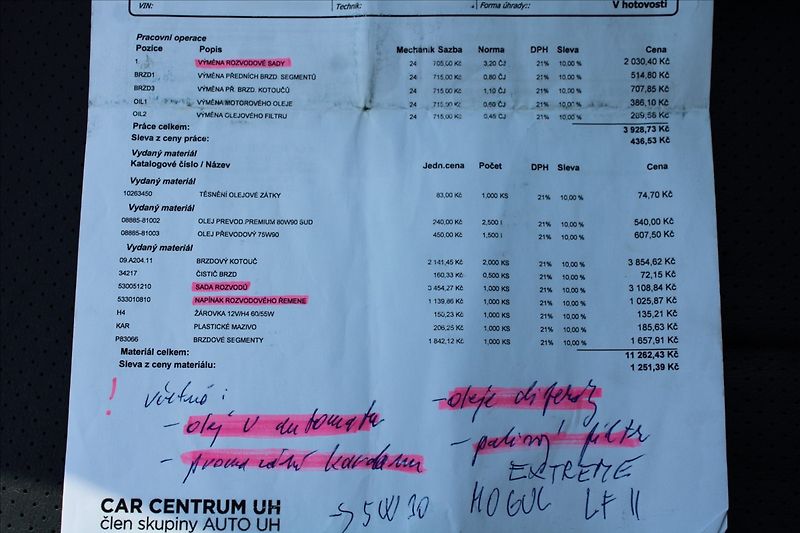 VIN: Technik: Forma úhrady: V hotovosti
Pracovní operace
Pozice Popis Mechanik Sazba Norma DPH Sleva Cena
1 VÝMĚNA ROZVODOVÉ SADY 24 705,00 Kč 3,20 ČJ 21% 10,00 % 2 030,40 Kč
BRZD1 VÝMĚNA PŘEDNÍCH BRZD. SEGMENTŮ 24 715,00 Kč 0,80 ČJ 21% 10,00 % 514,80 Kč
BRZD3 VÝMĚNA PŘ. BRZD. KOTOUČŮ 24 715,00 Kč 1,10 ČJ 21% 10,00 % 707,85 Kč
OIL1 VÝMĚNA MOTOROVÉHO OLEJE 24 715,00 Kč 0,60 ČJ 21% 10,00 % 386,10 Kč
OIL2 VÝMĚNA OLEJOVÉHO FILTRU 24 715,00 Kč 0,45 ČJ 21% 10,00 % 289,58 Kč
Práce celkem: 3 928,73 Kč
Sleva z ceny práce: 436,53 Kč
Vydaný materiál
Katalogové číslo / Název Jedn.cena Počet DPH Sleva Cena
Vydaný materiál
10263450 TĚSNĚNÍ OLEJOVÉ ZÁTKY 83,00 Kč 1,000 KS 21% 10,00 % 74,70 Kč
Vydaný materiál
08885-81002 OLEJ PREVOD.PREMIUM 80W90 SUD 240,00 Kč 2,500 l 21% 10,00 % 540,00 Kč
08885-81003 OLEJ PŘEVODOVÝ 75W90 450,00 Kč 1,500 l 21% 10,00 % 607,50 Kč
Vydaný materiál
09.A204.11 BRZDOVÝ KOTOUČ 2 141,45 Kč 2,000 KS 21% 10,00 % 3 854,62 Kč
34217 ČISTIČ BRZD 160,33 Kč 0,500 KS 21% 10,00 % 72,15 Kč
530051210 SADA ROZVODŮ 3 454,27 Kč 1,000 KS 21% 10,00 % 3 108,84 Kč
533010810 NAPÍNÁK ROZVODOVÉHO ŘEMENE 1 139,86 Kč 1,000 KS 21% 10,00 % 1 025,87 Kč
H4 ŽÁROVKA 12V/H4 60/55W 150,23 Kč 1,000 KS 21% 10,00 % 135,21 Kč
KAR PLASTICKÉ MAZIVO 206,25 Kč 1,000 KS 21% 10,00 % 185,63 Kč
P83066 BRZDOVÉ SEGMENTY 1 842,12 Kč 1,000 KS 21% 10,00 % 1 657,91 Kč
Materiál celkem: 11 262,43 Kč
Sleva z ceny materiálu: 1 251,39 Kč
! včetně:
- olej v automatu
- promazání kardanu
- oleje diferáky
- palivový filtr
EXTREME
→ 5W30 MOGUL LF II
CAR CENTRUM UH
člen skupiny AUTO UH